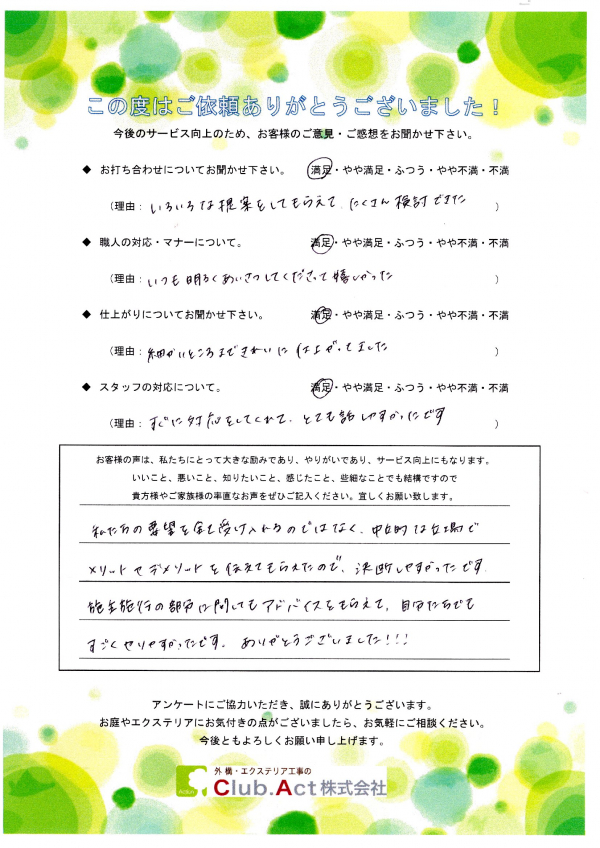 この度はご依頼ありがとうございました！
今後のサービス向上のため、お客様のご意見・ご感想をお聞かせ下さい。
◆ お打ち合わせについてお聞かせ下さい。 満足・やや満足・ふつう・やや不満・不満
（理由：いろいろな提案をしてもらえて、たくさん検討できた ）
◆ 職人の対応・マナーについて。 満足・やや満足・ふつう・やや不満・不満
（理由：いつも明るくあいさつしてくださって嬉しかった ）
◆ 仕上がりについてお聞かせ下さい。 満足・やや満足・ふつう・やや不満・不満
（理由：細かいところまできれいに仕上がってました ）
◆ スタッフの対応について。 満足・やや満足・ふつう・やや不満・不満
（理由：すぐに対応をしてくれて、とても話しやすかったです ）
お客様の声は、私たちにとって大きな励みであり、やりがいであり、サービス向上にもなります。
いいこと、悪いこと、知りたいこと、感じたこと、些細なことでも結構ですので
貴方様やご家族様の率直なお声をぜひご記入ください。宜しくお願い致します。
私たちの要望を全て受け入れるのではなく、中立的な立場で
メリットやデメリットを伝えてもらえたので、決断しやすかったです
施主施行の部分に関してもアドバイスをもらえて、自分たちでも
すごくやりやすかったです。ありがとうございました!!!
アンケートにご協力いただき、誠にありがとうございます。
お庭やエクステリアにお気付きの点がございましたら、お気軽にご相談ください。
今後ともよろしくお願い申し上げます。
外構・エクステリア工事の
Club.Act株式会社